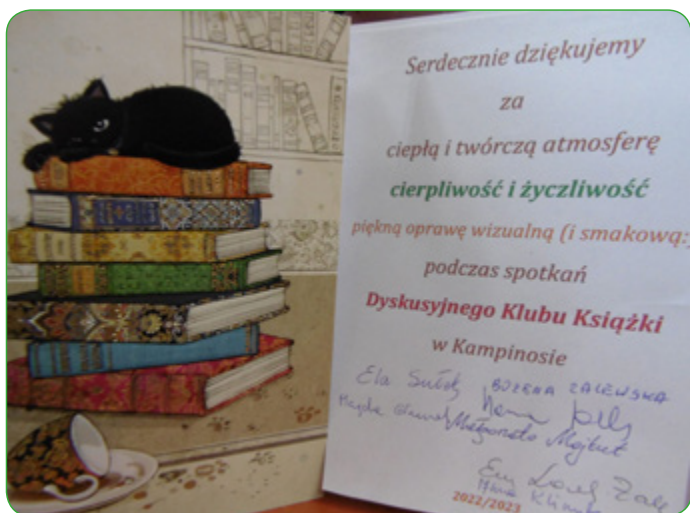 Serdecznie dziękujemy
za
ciepłą i twórczą atmosferę
cierpliwość i życzliwość
piękną oprawę wizualną (i smakową:
podczas spotkań
Dyskusyjnego Klubu Książki
w Kampinosie
Ela BOŻENA ZALEWSKA
Magda Małgorzata Majtut
Ewa
Anna
2022/2023